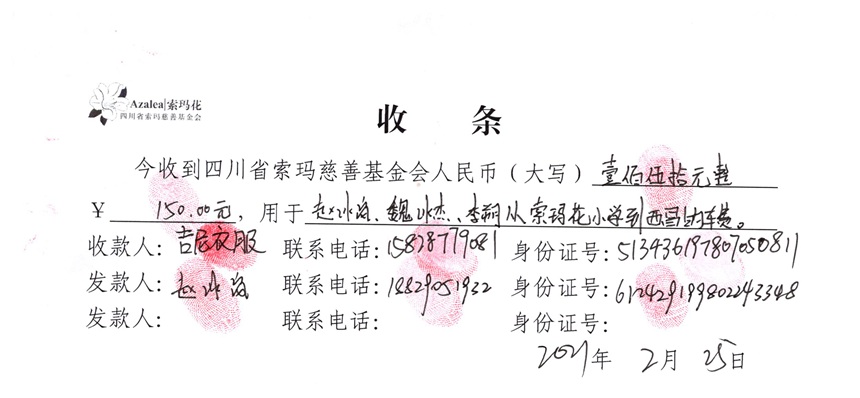 Azalea|索玛花
四川省索玛慈善基金会
收 条
今收到四川省索玛慈善基金会人民币（大写）壹佰伍拾元整
¥ 150.00元，用于赵冰海、魏冰杰、李朔从索玛花小学到西昌的车费。
收款人：吉尼衣服 联系电话：15828779081 身份证号：513436197807050811
发款人：赵冰海 联系电话：18829051932 身份证号：612429199802243348
发款人： 联系电话： 身份证号：
2021年 2月 25日